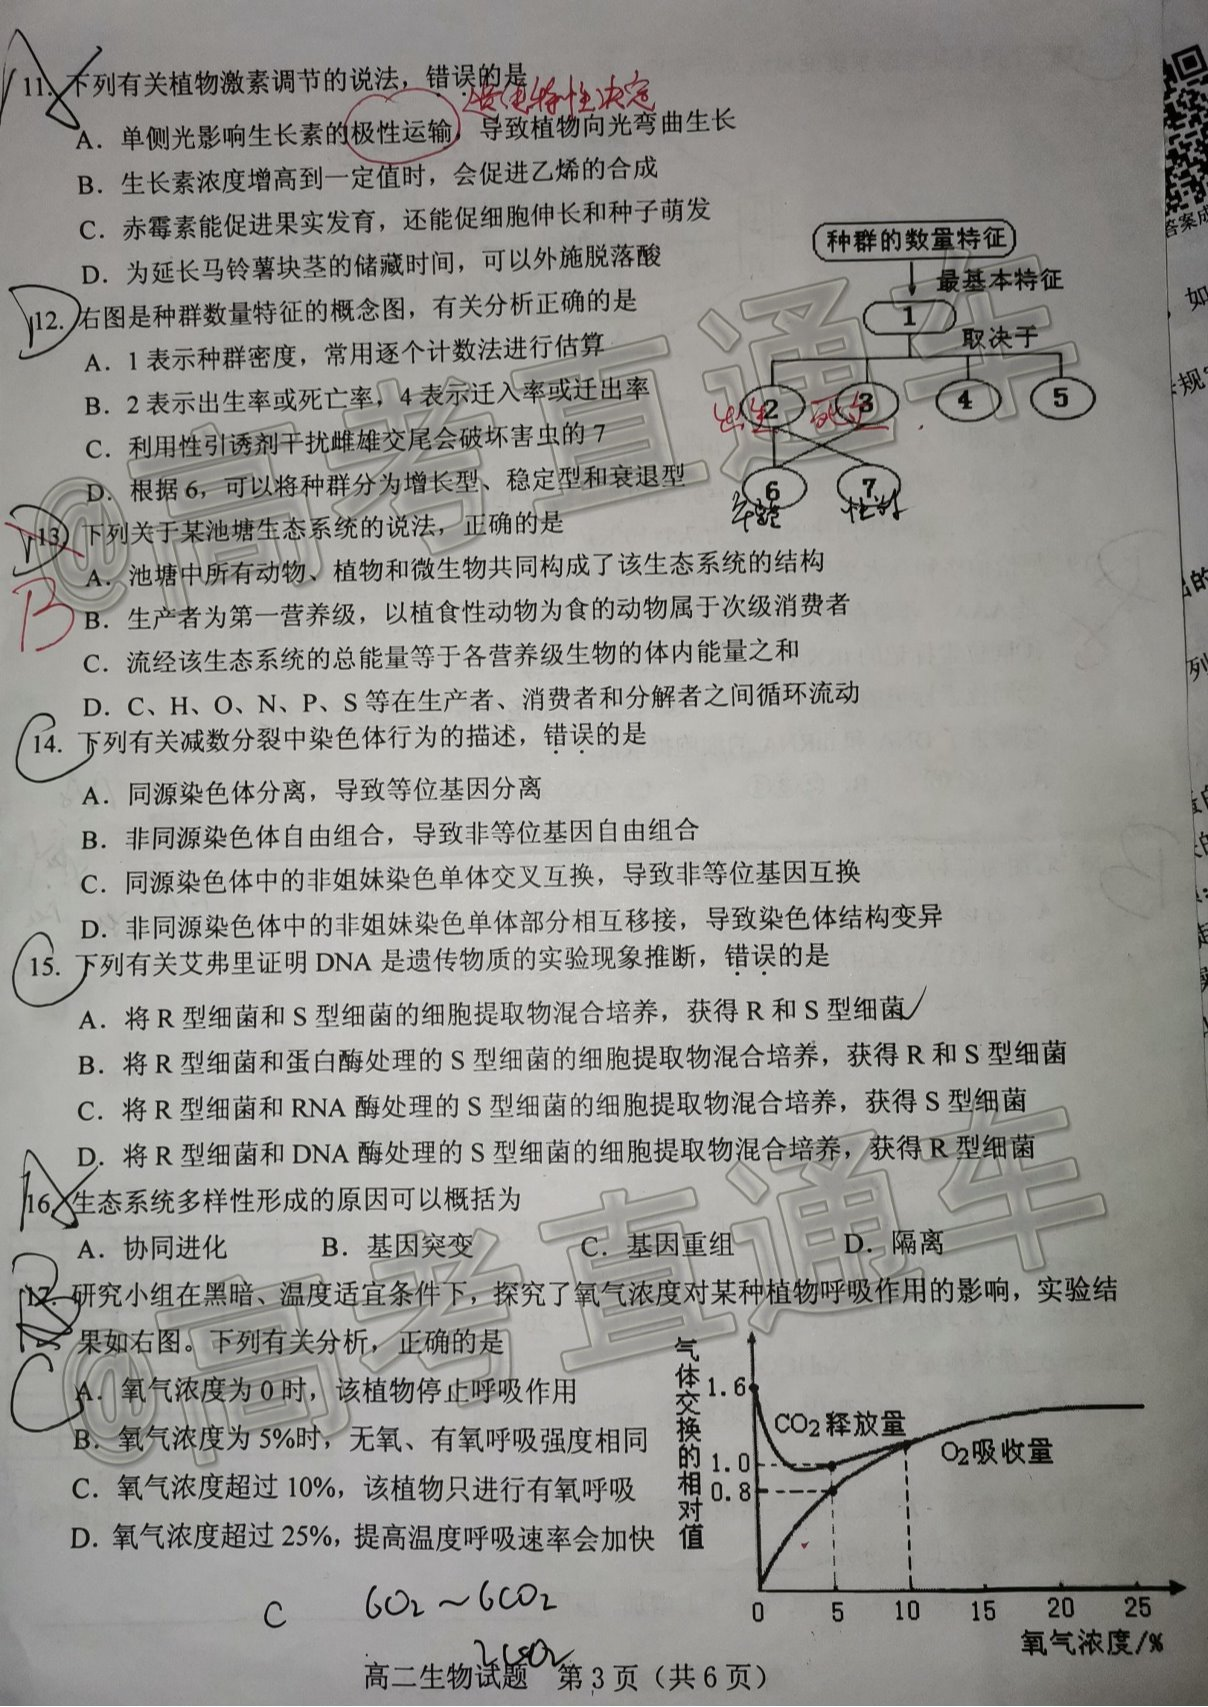 11. 下列有关植物激素调节的说法，错误的是
遗传特性决定
A．单侧光影响生长素的极性运输，导致植物向光弯曲生长
B．生长素浓度增高到一定值时，会促进乙烯的合成
C．赤霉素能促进果实发育，还能促细胞伸长和种子萌发
D．为延长马铃薯块茎的储藏时间，可以外施脱落酸
12. 右图是种群数量特征的概念图，有关分析正确的是
A．1 表示种群密度，常用逐个计数法进行估算
B．2 表示出生率或死亡率，4 表示迁入率或迁出率
C．利用性引诱剂干扰雌雄交尾会破坏害虫的 7
D．根据 6，可以将种群分为增长型、稳定型和衰退型
种群的数量特征
最基本特征
1
取决于
2 3 4 5
出生 死亡
6 7
年龄 性别
13 下列关于某池塘生态系统的说法，正确的是
B
A．池塘中所有动物、植物和微生物共同构成了该生态系统的结构
B．生产者为第一营养级，以植食性动物为食的动物属于次级消费者
C．流经该生态系统的总能量等于各营养级生物的体内能量之和
D．C、H、O、N、P、S 等在生产者、消费者和分解者之间循环流动
14. 下列有关减数分裂中染色体行为的描述，错误的是
A．同源染色体分离，导致等位基因分离
B．非同源染色体自由组合，导致非等位基因自由组合
C．同源染色体中的非姐妹染色单体交叉互换，导致非等位基因互换
D．非同源染色体中的非姐妹染色单体部分相互移接，导致染色体结构变异
15. 下列有关艾弗里证明 DNA 是遗传物质的实验现象推断，错误的是
A．将 R 型细菌和 S 型细菌的细胞提取物混合培养，获得 R 和 S 型细菌
B．将 R 型细菌和蛋白酶处理的 S 型细菌的细胞提取物混合培养，获得 R 和 S 型细菌
C．将 R 型细菌和 RNA 酶处理的 S 型细菌的细胞提取物混合培养，获得 S 型细菌
D．将 R 型细菌和 DNA 酶处理的 S 型细菌的细胞提取物混合培养，获得 R 型细菌
16. 生态系统多样性形成的原因可以概括为
A．协同进化 B．基因突变 C．基因重组 D．隔离
17. 研究小组在黑暗、温度适宜条件下，探究了氧气浓度对某种植物呼吸作用的影响，实验结
果如右图。下列有关分析，正确的是
A．氧气浓度为 0 时，该植物停止呼吸作用
B．氧气浓度为 5%时，无氧、有氧呼吸强度相同
C．氧气浓度超过 10%，该植物只进行有氧呼吸
D．氧气浓度超过 25%，提高温度呼吸速率会加快
气体交换的相对值
1.6
1.0
0.8
CO₂释放量
O₂吸收量
0 5 10 15 20 25
氧气浓度/%
C 6O₂～6CO₂
高二生物试题 第 3 页（共 6 页）
@高考直通车
@高考直通车